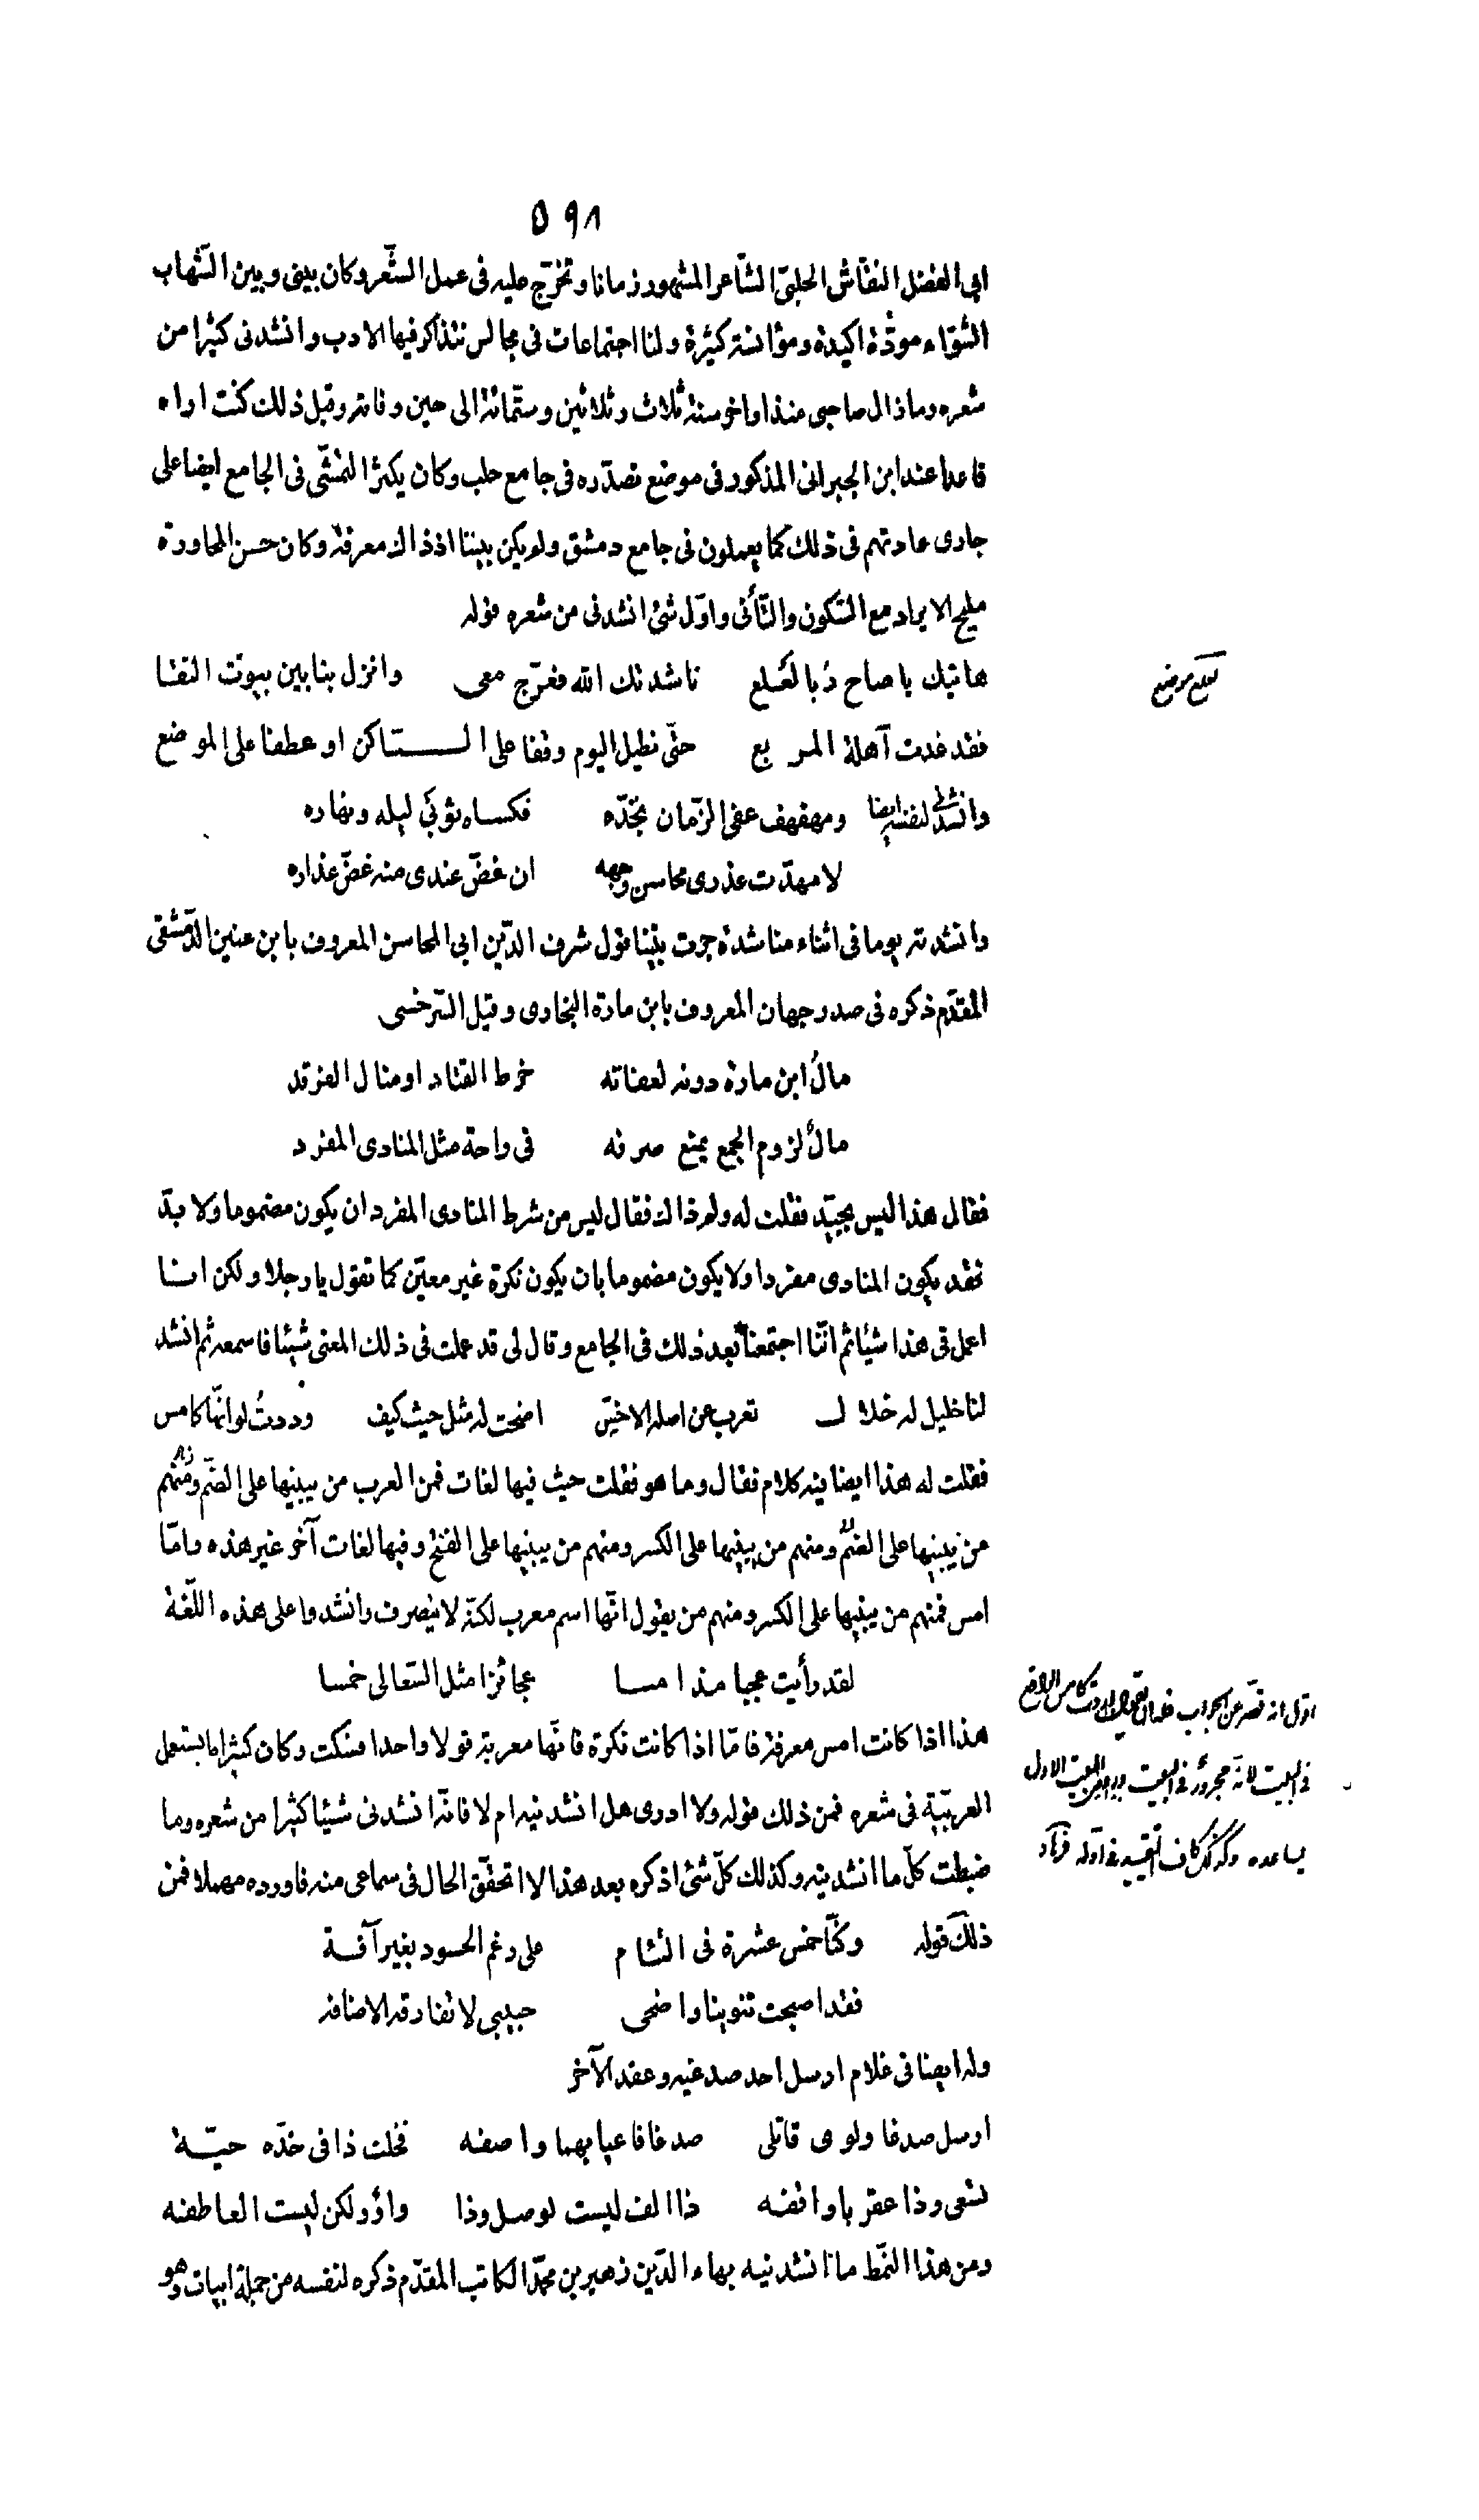 ٥٩٨
ابي الفضل النقّاش الحلبىّ الشّاعر المشهور زمانا وتخرّج عليه فى عمل الشّعر وكان بينى وبين الشّهاب
الشّوّاء مودّة اكيدة ومؤانسة كثيرة ولنا اجتماعات فى مجالس نتذاكر فيها الادب وانشدنى كثيرا من
شعره وما زال صاحبى منذ اواخر سنة ثلاث وثلاثين وستّمائة الى حين وفاته وقبل ذلك كنت اراه
قاعدا عند ابن الجبرانى المذكور فى موضع تصدّره فى جامع حلب وكان يكثر التمشّى فى الجامع ايضا على
جارى عادتهم فى ذلك كما يعملون فى جامع دمشق ولم يكن بيننا اذ ذاك معرفة وكان حسن المحاورة
مليح الايراد مع السّكون والتّأنى واوّل شئ انشدنى من شعره قوله
هاتيك يا صاح رُبا لَعْلع ناشدتك الله فعرّج معى وانزل بنا بين بيوت النقا
لعلع موضع
فقد غدت آهلة المربع حتّى نطيل اليوم وقفا على الساكن او عطفا على الموضع
وانشدنى لنفسه ايضا ومهفهف عنى الزّمان بخدّه فكساه ثوبَي ليله ونهاره
لا مهدّت عذرى محاسن وجهه ان غضّ عندى منه غضّ عذاره
وانشدته يوما فى اثناء مناشدة جرت بيننا قول شرف الدّين ابى المحاسن المعروف بابن عنين الدّمشقى
المقدّم ذكره فى صدر جهان المعروف بابن مازة البخارى وقيل السّرخسى
مالُ ابن مازة دونه لعفاته خرط القتاد او منال الفرقد
مالٌ لزوم الجمع يمنع صرفه فى راحة مثل المنادى المفرد
فقال هذا ليس بجيّد فقلت له ولم ذاك فقال ليس من شرط المنادى المفرد ان يكون مضموما ولا بدّ
فقد يكون المنادى مفردا ولا يكون مضموما بان يكون نكرة غير معيّن كما تقول يا رجلا ولكن انا
اعمل فى هذا شيئا ثم انّنا اجتمعنا بعد ذلك فى الجامع وقال لى قد عملت فى ذلك المعنى شيئا فاسمعه ثم انشد
لنا خليل له خلال تعرب عن اصله الاخسّ اضحت له مثل حيث كيف وددتُ لو انّها كامس
فقلت له هذا ايضا فيه كلام فقال وما هو فقلت حيث فيها لغات فمن العرب من يبنيها على الضمّ ومنهم
من يبنيها على الضمّ ومنهم من يبنيها على الكسر ومنهم من يبنيها على الفتح وفيها لغات آخر غير هذه وامّا
امس فمنهم من يبنيها على الكسر ومنهم من يقول انّها اسم معرب لكنّه لا ينصرف وانشدوا على هذه اللّغة
لقد رأيت عجبا مذ امسا عجائزا مثل السّعالى خمسا
هذا اذا كانت امس معرفة فامّا اذا كانت نكرة فانّها معربة قولا واحدا فسكت وكان كثيرا ما يستعمل
العربيّة فى شعره فمن ذلك قوله ولا ادرى هل انشدنيه ام لا فانّه انشدنى شيئا كثيرا من شعره وما
ضبطت كلّ ما انشدنيه وكذلك كلّ شئ اذكره بعد هذا لا اتحقّق الحال فى سماعى منه فاورده مهملا فمن
ذلك قوله وكنّا خمس عشرة فى التئام على رغم الحسود بغير آفة
فقد اصبحت تنوينا واضحى حبيبى لا تفارقه الاضافة
وله ايضا فى غلام ارسل احد صدغيه وعقد الآخر
ارسل صدغا ولوى قاتلى صدغا فاعيا بهما واصفه فخلت ذا فى خدّه حيّة
تسعى وذا عقربا واقفه ذا الف ليست لوصل وذا واوٌ ولكن ليست العاطفه
ومن هذا النمّط ما انشدنيه بهاء الدّين زهير بن محمّد الكاتب المقدّم ذكره لنفسه من جملة ابيات وهو
اقول انه قصّر عن الجواب
فى البيت لانّه مجرورٌ فى البيت الاول
يساعده وكذلك كاف